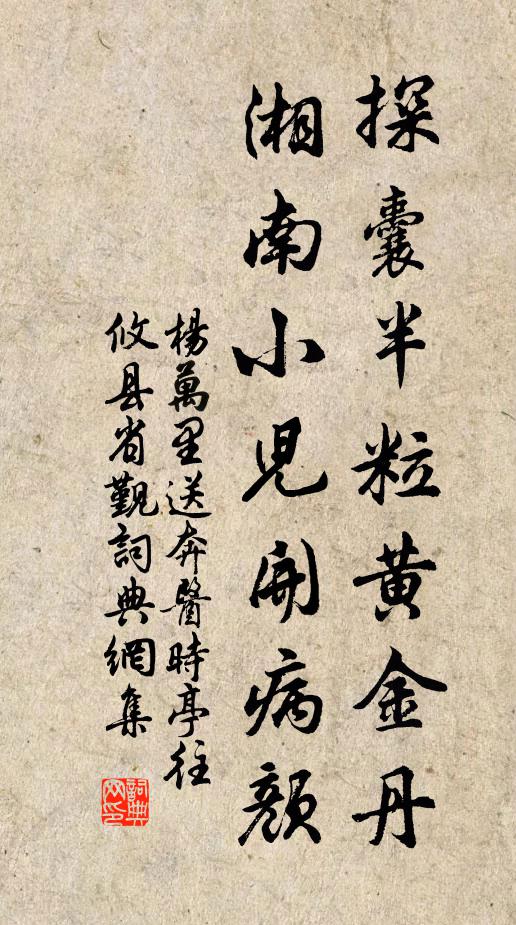 探囊半粒黄金丹
湘南小児開病顔
楊萬里送奔醫時亭往
攸县省觀詞典網集
詞典网印